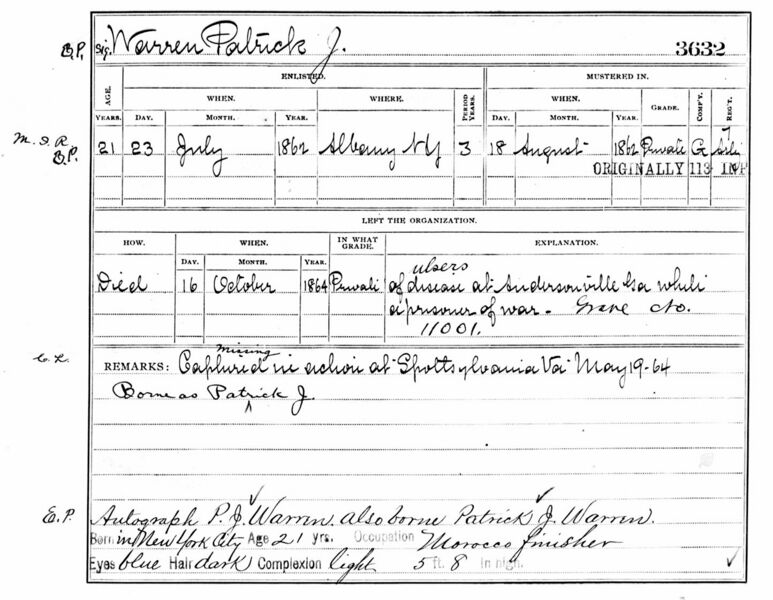 B.P. Sig. Warren Patrick J. 3632
ENLISTED. MUSTERED IN.
AGE. WHEN. WHERE. PERIOD YEARS. WHEN. GRADE. COMP'Y. REG'T.
YEARS. DAY. MONTH. YEAR. DAY. MONTH. YEAR.
M.I.R. 21 23 July 1862 Albany NY 3 18 August 1862 Private G 7
B.P. ORIGINALLY 113 INF
LEFT THE ORGANIZATION.
HOW. WHEN. IN WHAT GRADE. EXPLANATION.
DAY. MONTH. YEAR.
ulsers
Died 16 October 1864 Private of disease at Andersonville Ga while
a prisoner of war. Grave No.
11001.
Missing
C.L. REMARKS: Captured in action at Spottsylvania Va May 19-64
Borne as Patrick J.
E.P. Autograph P. J. Warren. also borne Patrick J. Warren.
Born in New York City Age 21 yrs. Occupation Morocco finisher
Eyes blue Hair dark Complexion light 5 ft. 8 in high.